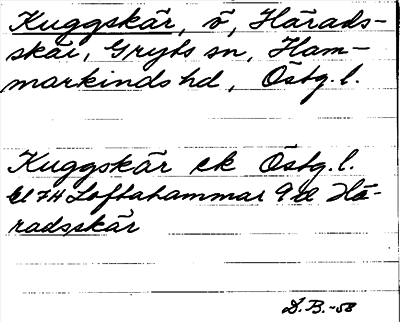 Kuggskär, ö, Härads-
skär, Gryts sn, Ham-
markinds hd, Östg. l.
Kuggskär ek Östg. l.
bl 74 Loftahammar 9 d Hä-
radsskär
D.B.-58